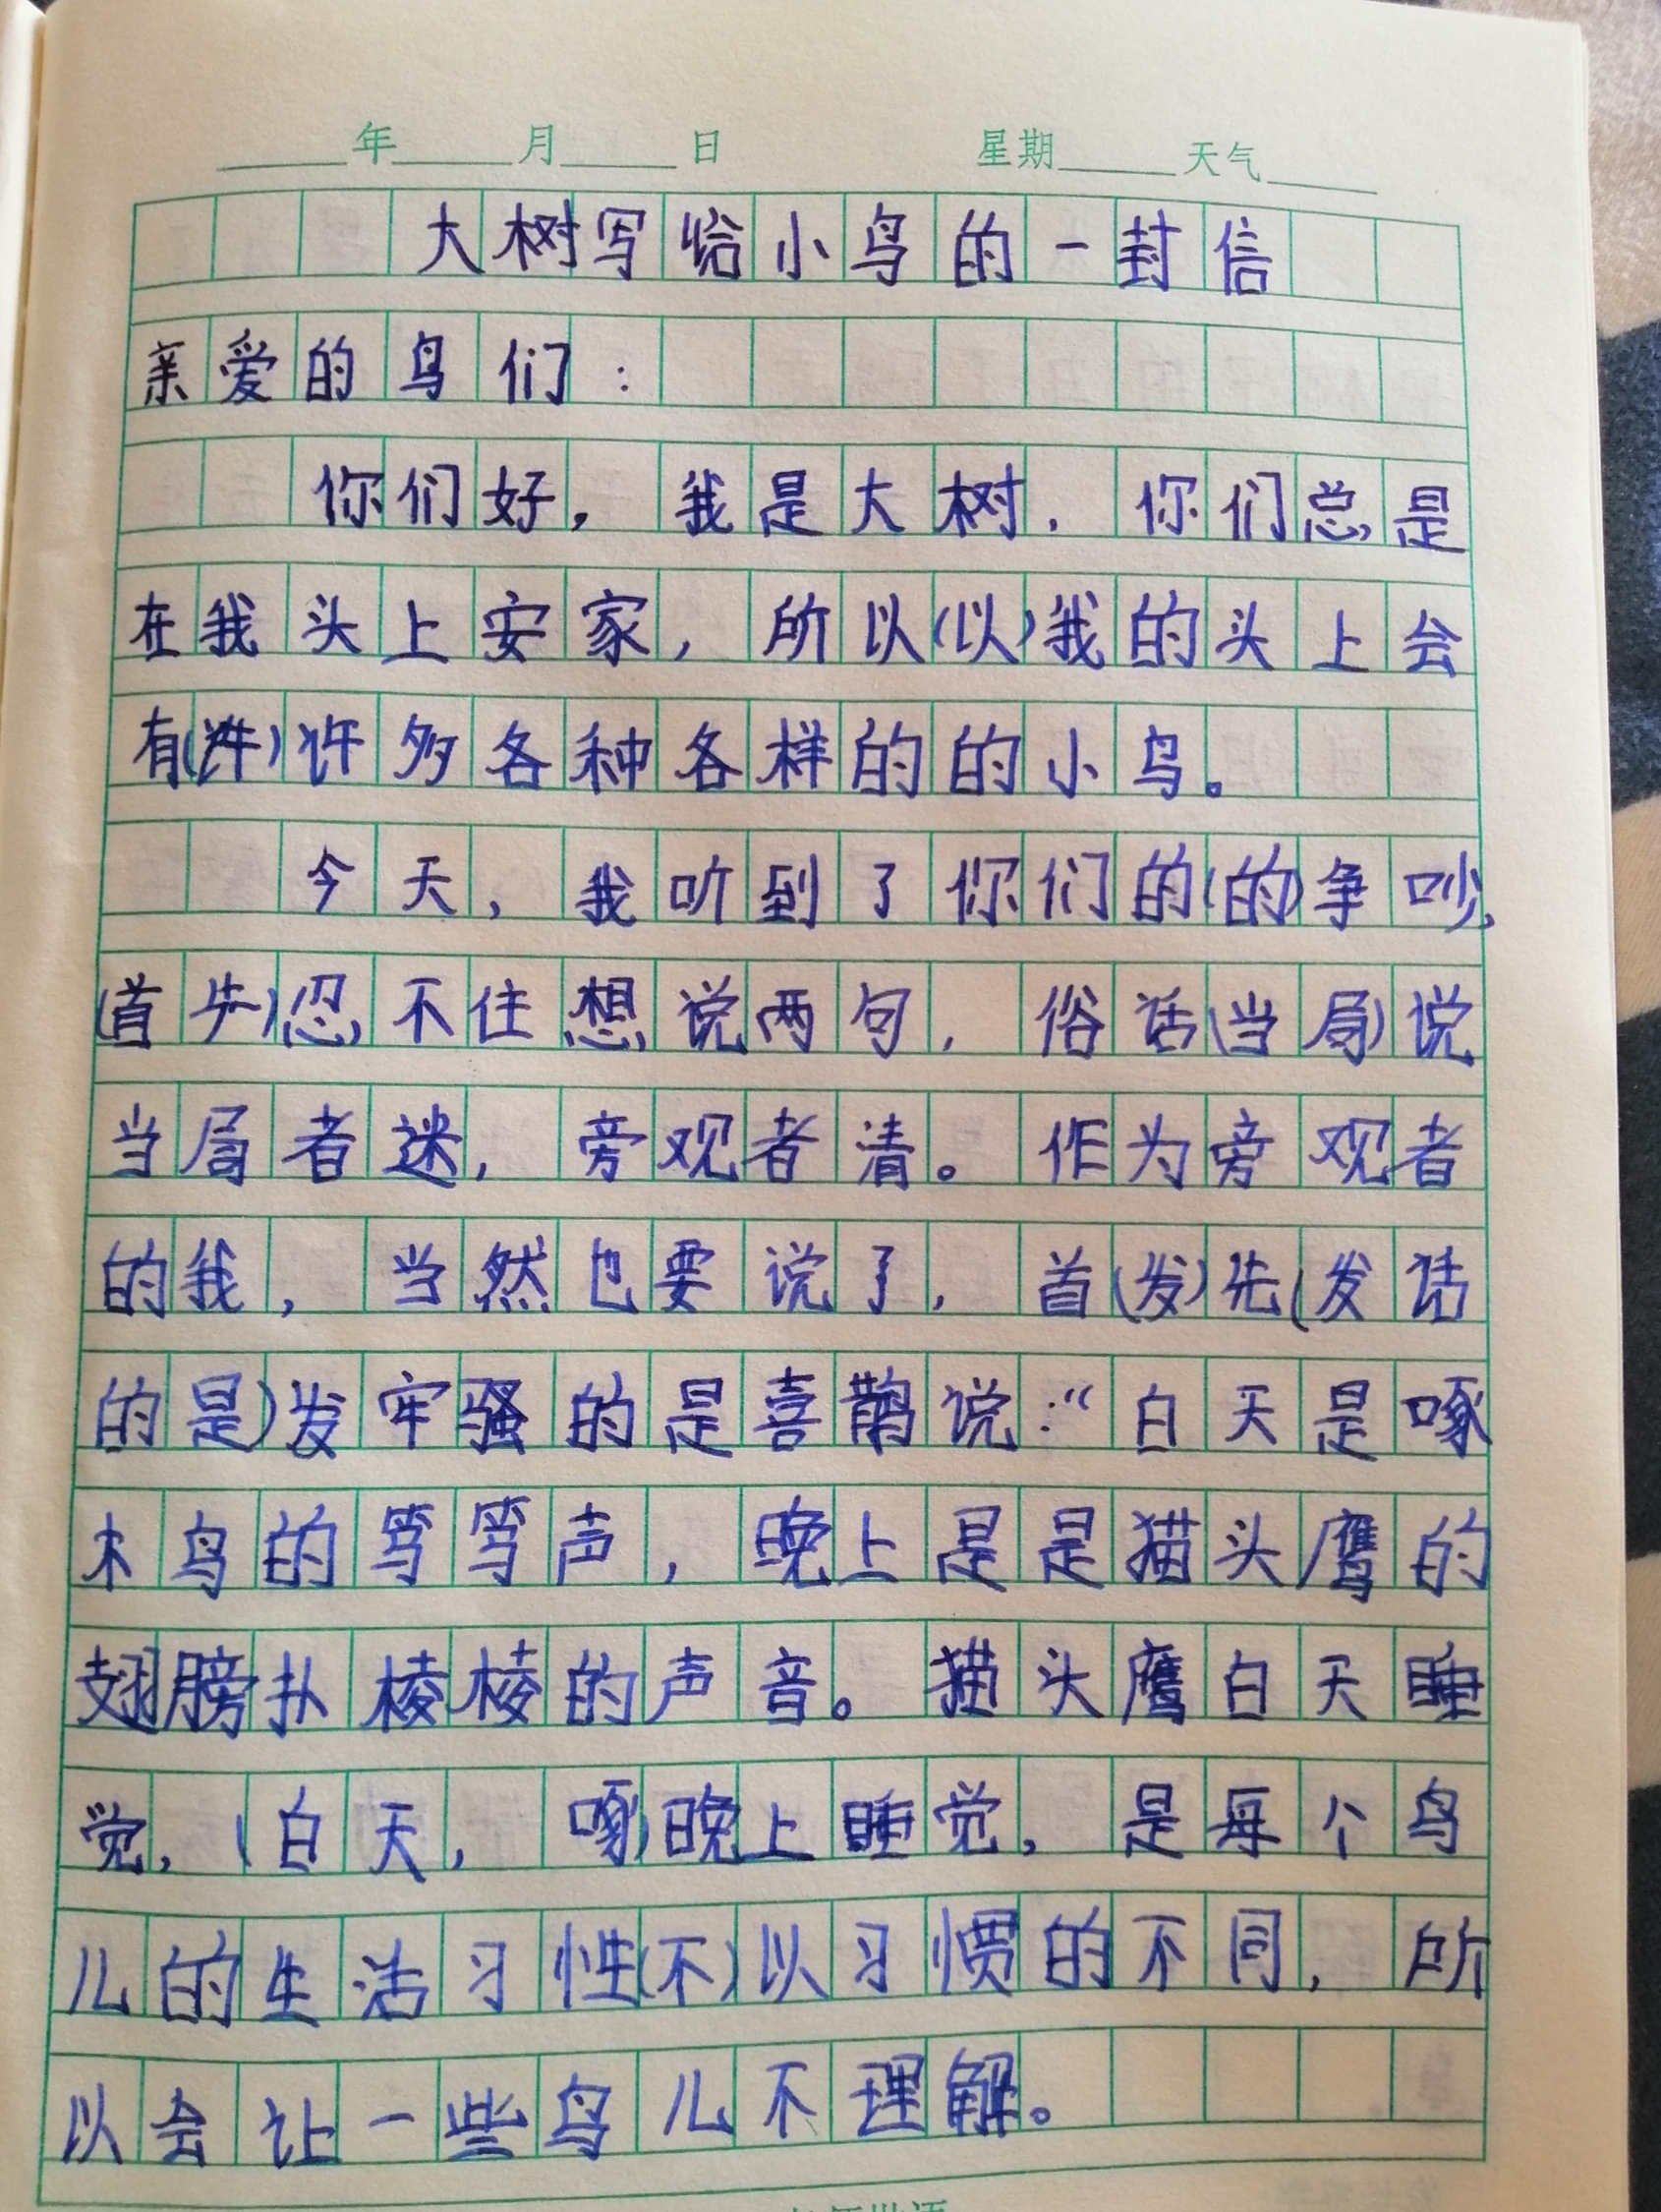 年 月 日 星期 天气
大树写给小鸟的一封信
亲爱的鸟们：
你们好，我是大树，你们总是
在我头上安家，所以(以)我的头上会
有(许)许多各种各样的的小鸟。
今天，我听到了你们的(的)争吵，
(首先)忍不住想说两句，俗话(当局)说
当局者迷，旁观者清。作为旁观者
的我，当然也要说了，首(发)先(发话
的是)发牢骚的是喜鹊说：“白天是啄
木鸟的笃笃声，晚上是是猫头鹰的
翅膀扑棱棱的声音。猫头鹰白天睡
觉，(白天，啄)晚上睡觉，是每个鸟
儿的生活习性(不)以习惯的不同，所
以会让一些鸟儿不理解。